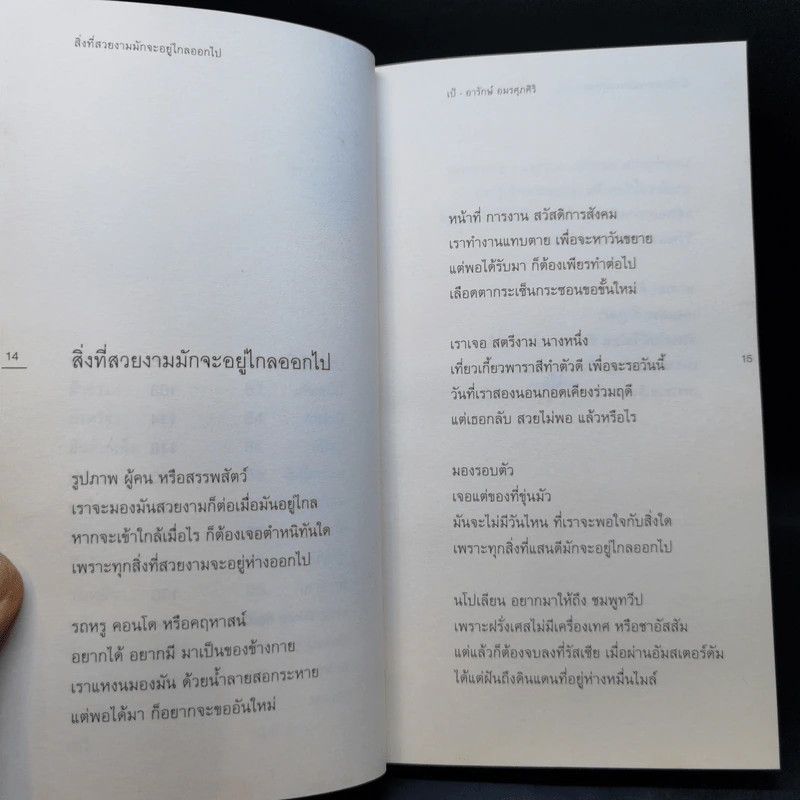 สิ่งที่สวยงามมักจะอยู่ไกลออกไป
14
สิ่งที่สวยงามมักจะอยู่ไกลออกไป
รูปภาพ ผู้คน หรือสรรพสัตว์
เราจะมองมันสวยงามก็ต่อเมื่อมันอยู่ไกล
หากจะเข้าใกล้เมื่อไร ก็ต้องเจอตำหนิทันใด
เพราะทุกสิ่งที่สวยงามจะอยู่ห่างออกไป
รถหรู คอนโด หรือคฤหาสน์
อยากได้ อยากมี มาเป็นของข้างกาย
เราแหงนมองมัน ด้วยน้ำลายสอกระหาย
แต่พอได้มา ก็อยากจะขออันใหม่
เป้ - อารักษ์ อมรศุภศิริ
หน้าที่ การงาน สวัสดิการสังคม
เราทำงานแทบตาย เพื่อจะหาวันขยาย
แต่พอได้รับมา ก็ต้องเพียรทำต่อไป
เลือดตากระเซ็นกระซอนขอขั้นใหม่
เราเจอ สตรีงาม นางหนึ่ง
เที่ยวเกี้ยวพาราสีทำตัวดี เพื่อจะรอวันนี้
วันที่เราสองนอนกอดเคียงร่วมฤดี
แต่เธอกลับ สวยไม่พอ แล้วหรือไร
15
มองรอบตัว
เจอแต่ของที่ขุ่นมัว
มันจะไม่มีวันไหน ที่เราจะพอใจกับสิ่งใด
เพราะทุกสิ่งที่แสนดีมักจะอยู่ไกลออกไป
นโปเลียน อยากมาให้ถึง ชมพูทวีป
เพราะฝรั่งเศสไม่มีเครื่องเทศ หรือชาอัสสัม
แต่แล้วก็ต้องจบลงที่รัสเซีย เมื่อผ่านอัมสเตอร์ดัม
ได้แต่ฝันถึงดินแดนที่อยู่ห่างหมื่นไมล์